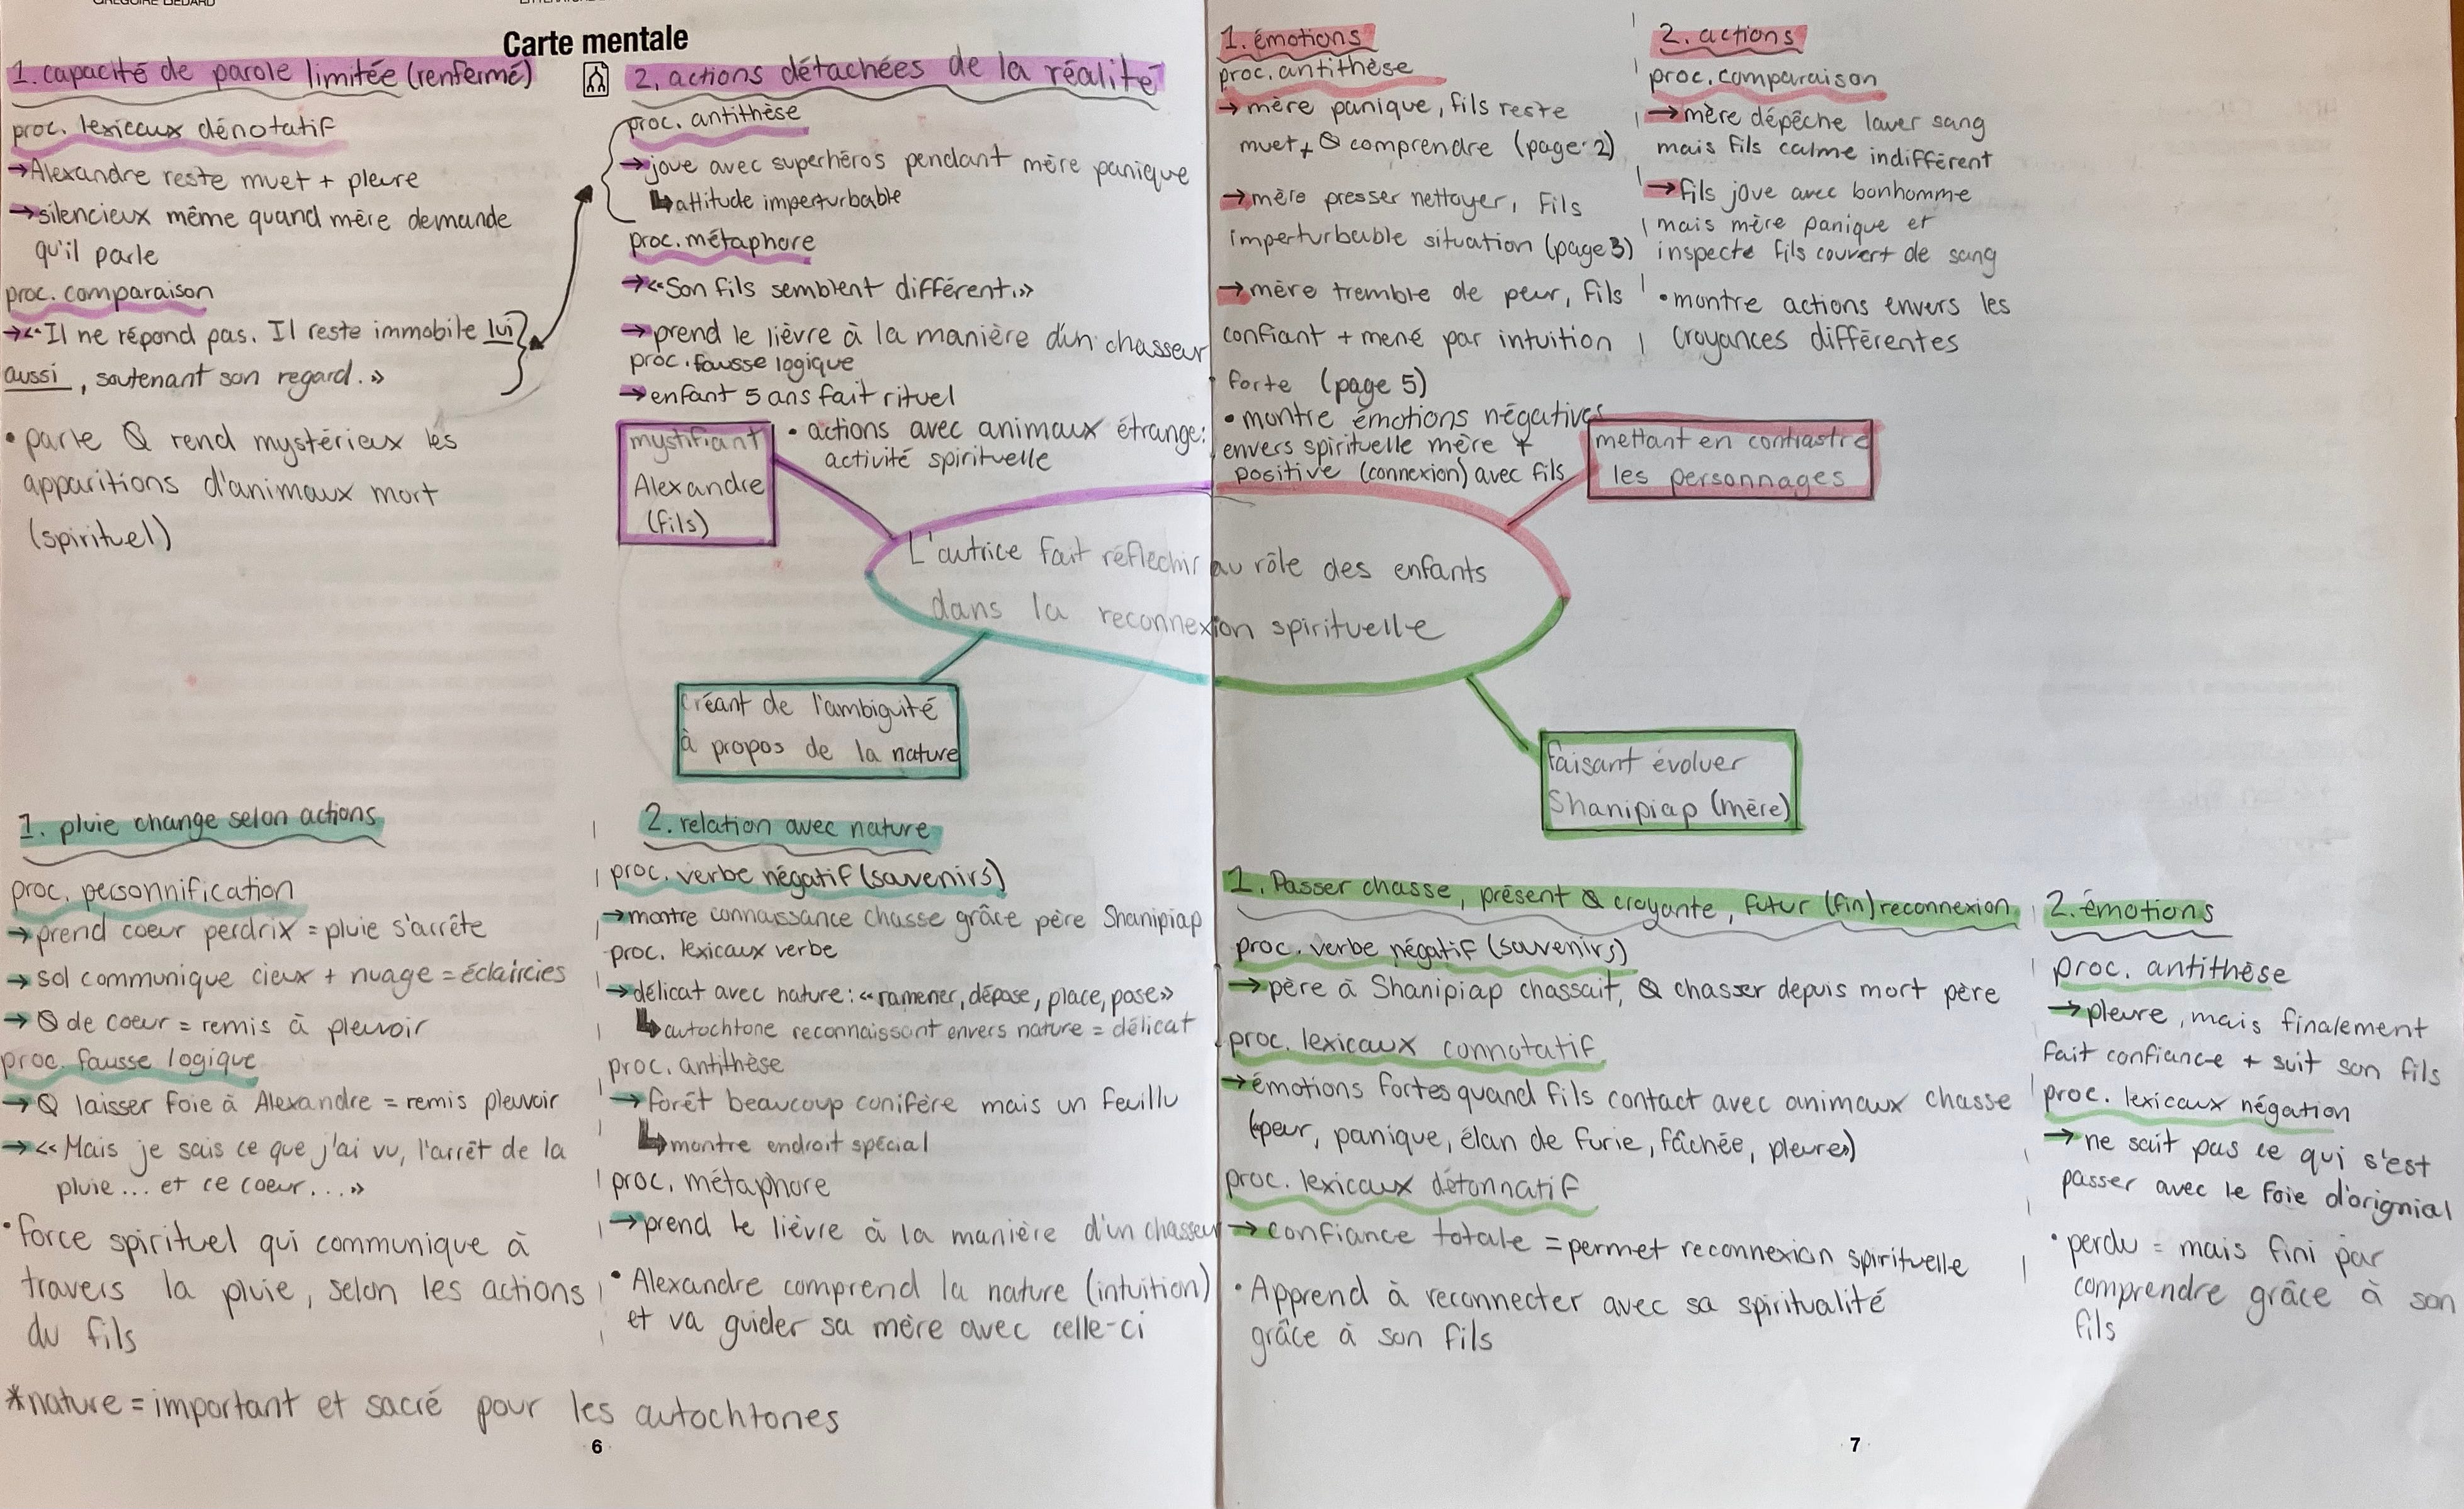 GRÉGOIRE BÉDARD
Carte mentale
1. capacité de parole limitée (renfermé)
proc. lexicaux dénotatif
→Alexandre reste muet + pleure
→silencieux même quand mère demande
qu'il parle
proc. comparaison
→«Il ne répond pas. Il reste immobile lui
aussi, soutenant son regard.»
• parle Ø rend mystérieux les
apparitions d'animaux mort
(spirituel)
2. actions détachées de la réalité
proc. antithèse
→joue avec superhéros pendant mère panique
↳attitude imperturbable
proc. métaphore
→«Son fils semblent différent.»
→prend le lièvre à la manière d'un chasseur
proc. fausse logique
→enfant 5 ans fait rituel
• actions avec animaux étrange:
activité spirituelle
mystifiant
Alexandre
(fils)
1. émotions
proc. antithèse
→mère panique, fils reste
muet + Ø comprendre (page 2)
→mère presser nettoyer, fils
imperturbable situation (page 3)
→mère tremble de peur, fils
confiant + mené par intuition
forte (page 5)
• montre émotions négatives
envers spirituelle mère +
positive (connexion) avec fils
2. actions
proc. comparaison
→mère dépêche laver sang
mais fils calme indifférent
→fils joue avec bonhomme
mais mère panique et
inspecte fils couvert de sang
• montre actions envers les
croyances différentes
mettant en contrastre
les personnages
L'autrice fait réflechir au rôle des enfants
dans la reconnexion spirituelle
créant de l'ambiguité
à propos de la nature
faisant évoluer
Shanipiap (mère)
1. pluie change selon actions
proc. personnification
→prend coeur perdrix = pluie s'arrête
→sol communique cieux + nuage = éclaircies
→Ø de coeur = remis à pleuvoir
proc. fausse logique
→Ø laisser foie à Alexandre = remis pleuvoir
→«Mais je sais ce que j'ai vu, l'arrêt de la
pluie... et ce coeur...»
• force spirituel qui communique à
travers la pluie, selon les actions
du fils
2. relation avec nature
proc. verbe négatif (souvenirs)
→montre connaissance chasse grâce père Shanipiap
proc. lexicaux verbe
→délicat avec nature: «ramener, dépose, place, pose»
↳autochtone reconnaissant envers nature = délicat
proc. antithèse
→forêt beaucoup conifère mais un feuillu
↳montre endroit spécial
proc. métaphore
→prend le lièvre à la manière d'un chasseur
• Alexandre comprend la nature (intuition)
et va guider sa mère avec celle-ci
*nature = important et sacré pour les autochtones
6
1. Passer chasse, présent Ø croyante, futur (fin) reconnexion
proc. verbe négatif (souvenirs)
→père à Shanipiap chassait, Ø chasser depuis mort père
proc. lexicaux connotatif
→émotions fortes quand fils contact avec animaux chasse
(«peur, panique, élan de furie, fâchée, pleure»)
proc. lexicaux détonnatif
→confiance totale = permet reconnexion spirituelle
• Apprend à reconnecter avec sa spiritualité
grâce à son fils
2. émotions
proc. antithèse
→pleure, mais finalement
fait confiance + suit son fils
proc. lexicaux négation
→ne sait pas ce qui s'est
passer avec le foie d'orignial
• perdu = mais fini par
comprendre grâce à son
fils
7